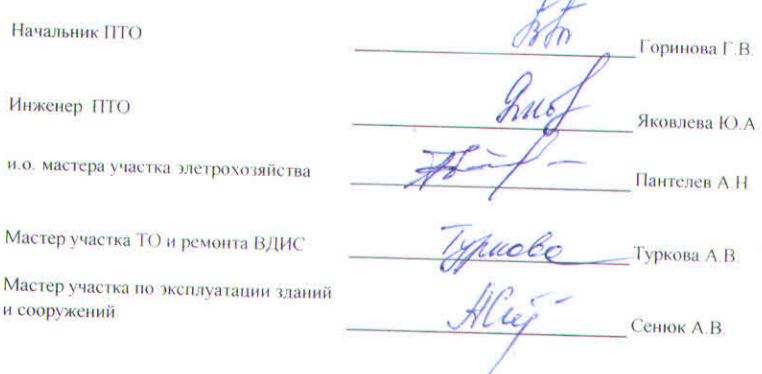 Начальник ПТО Горинова Г.В.
Инженер ПТО Яковлева Ю.А
и.о. мастера участка элетрохозяйства Пантелев А.Н
Мастер участка ТО и ремонта ВДИС Туркова Туркова А.В.
Мастер участка по эксплуатации зданий
и сооружений Сенюк А.В.